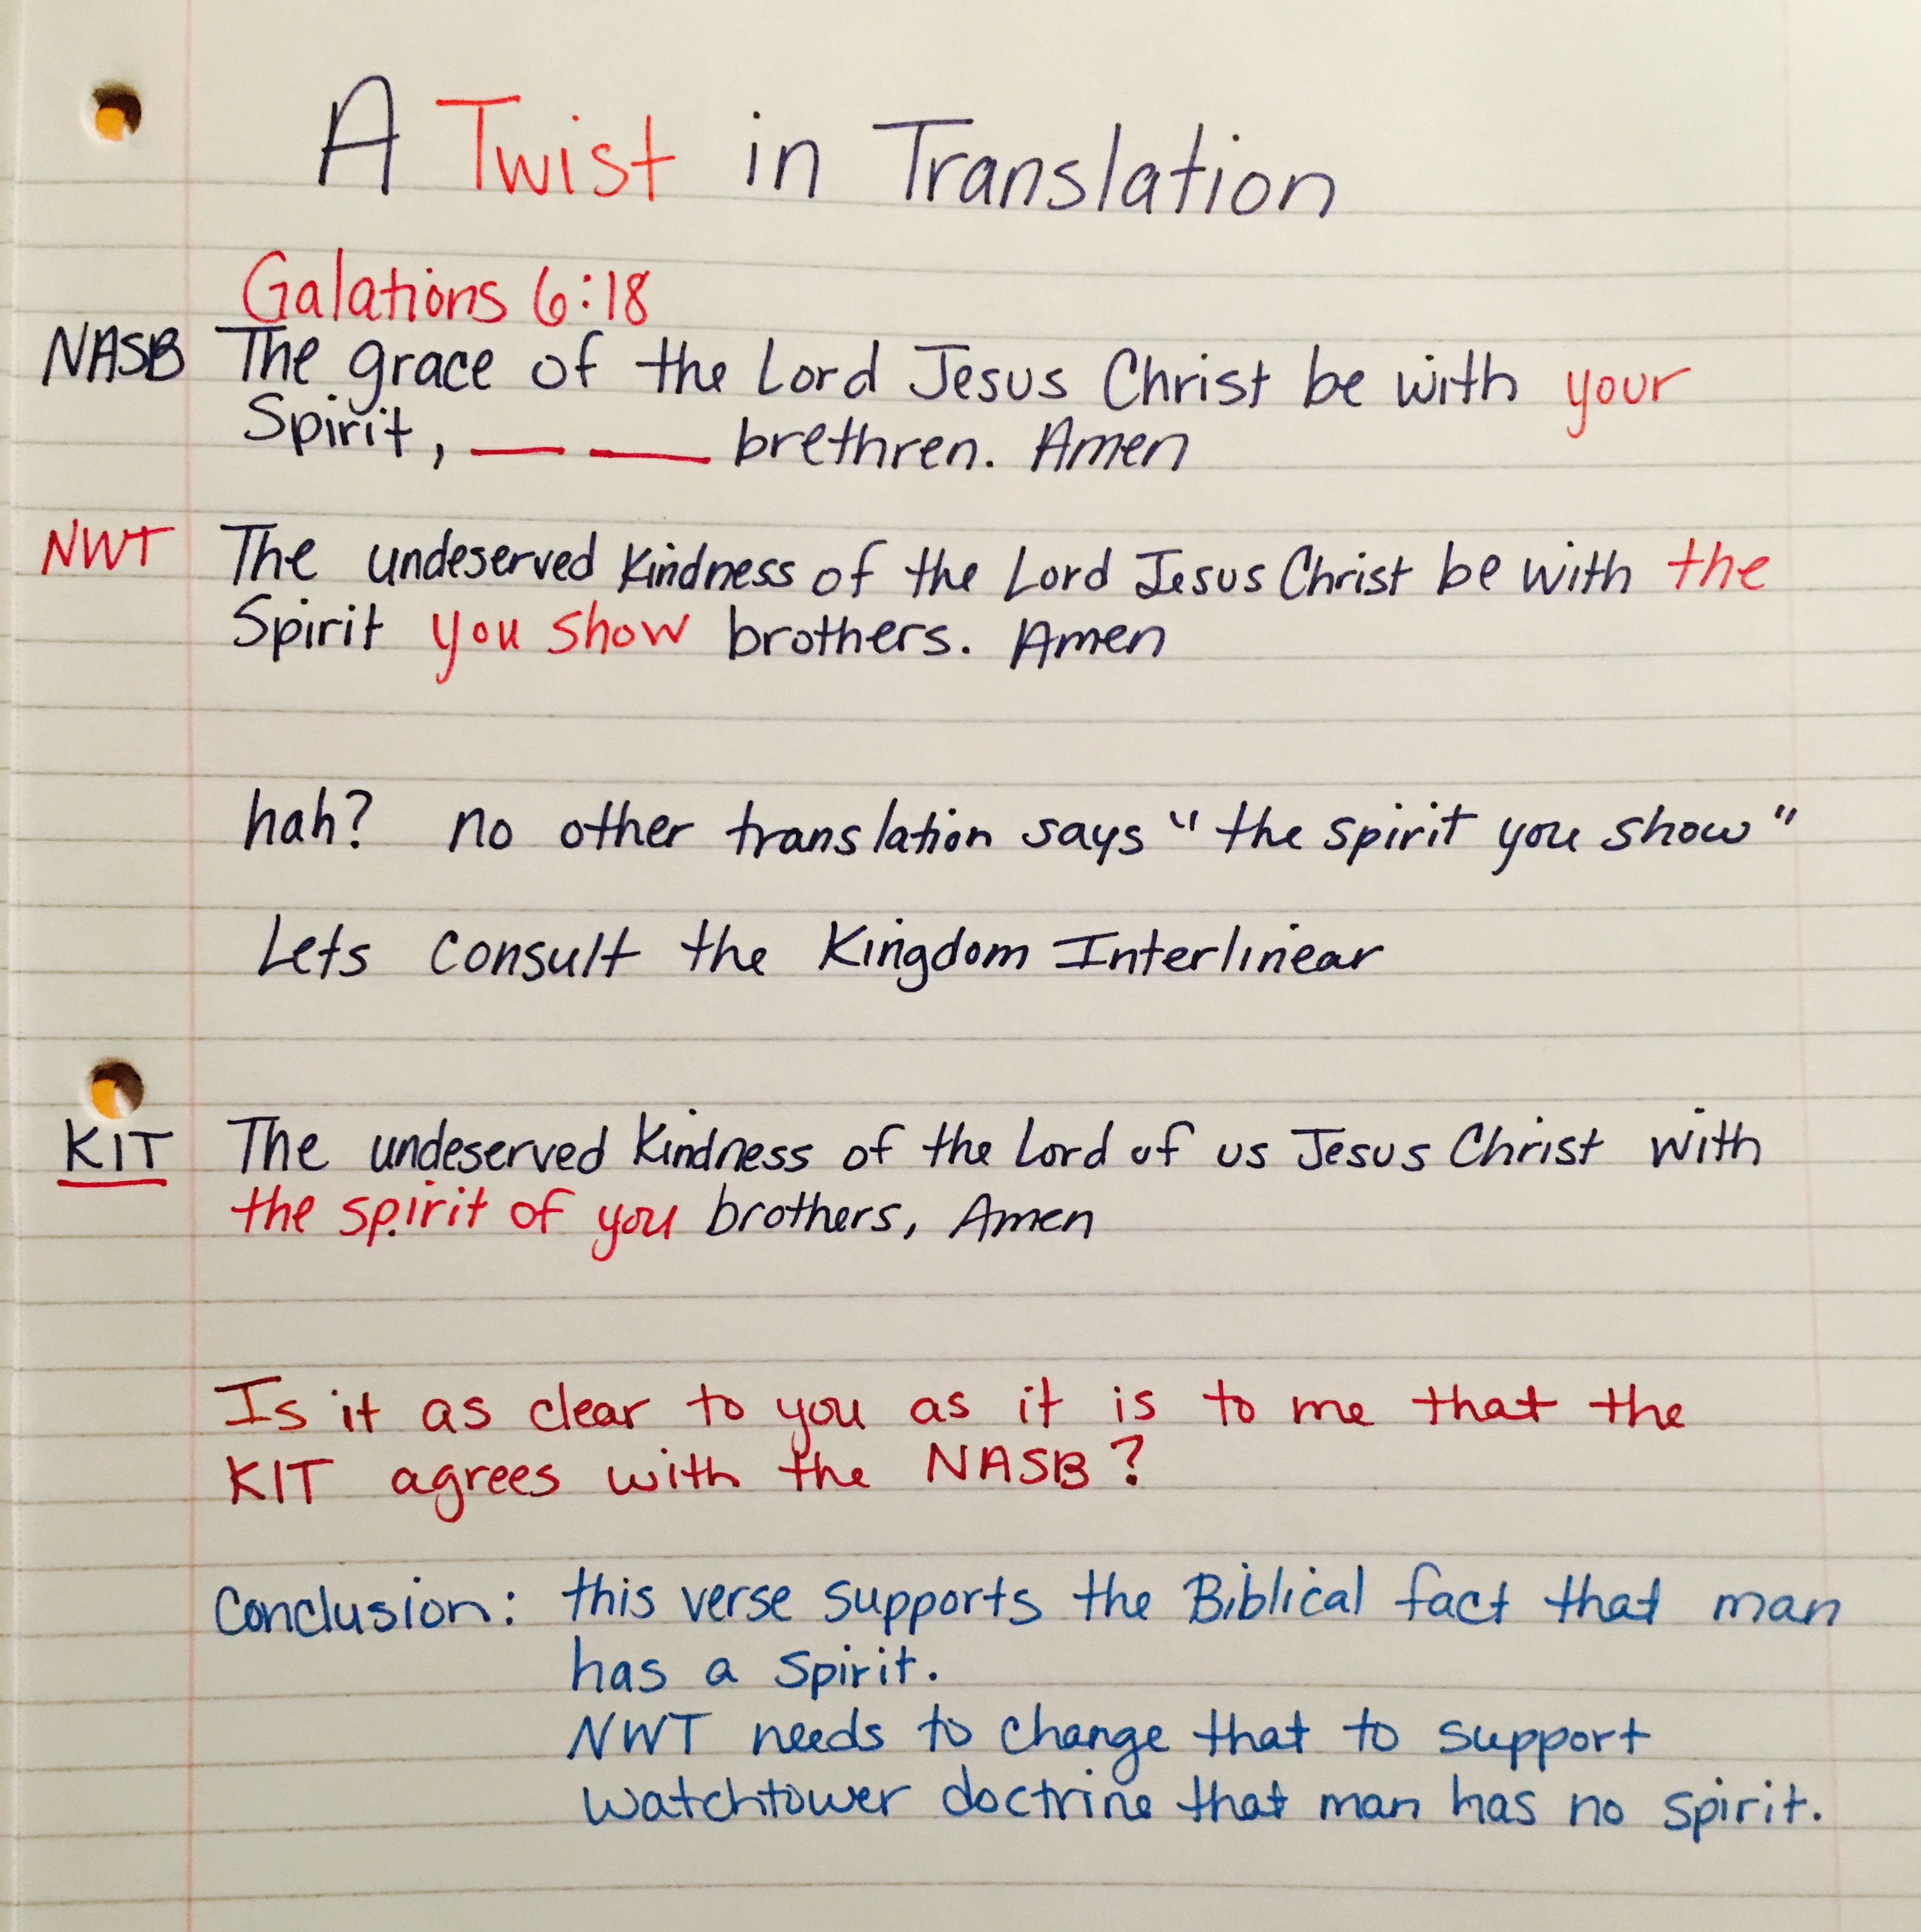 A Twist in Translation
Galations 6:18
NASB The grace of the Lord Jesus Christ be with your
Spirit, __ __ brethren. Amen
NWT The undeserved kindness of the Lord Jesus Christ be with the
Spirit you show brothers. Amen
hah? no other translation says "the spirit you show"
Lets consult the Kingdom Interlinear
KIT The undeserved kindness of the Lord of us Jesus Christ with
the spirit of you brothers, Amen
Is it as clear to you as it is to me that the
KIT agrees with the NASB?
Conclusion: this verse supports the Biblical fact that man
has a spirit.
NWT needs to change that to support
watchtower doctrine that man has no spirit.